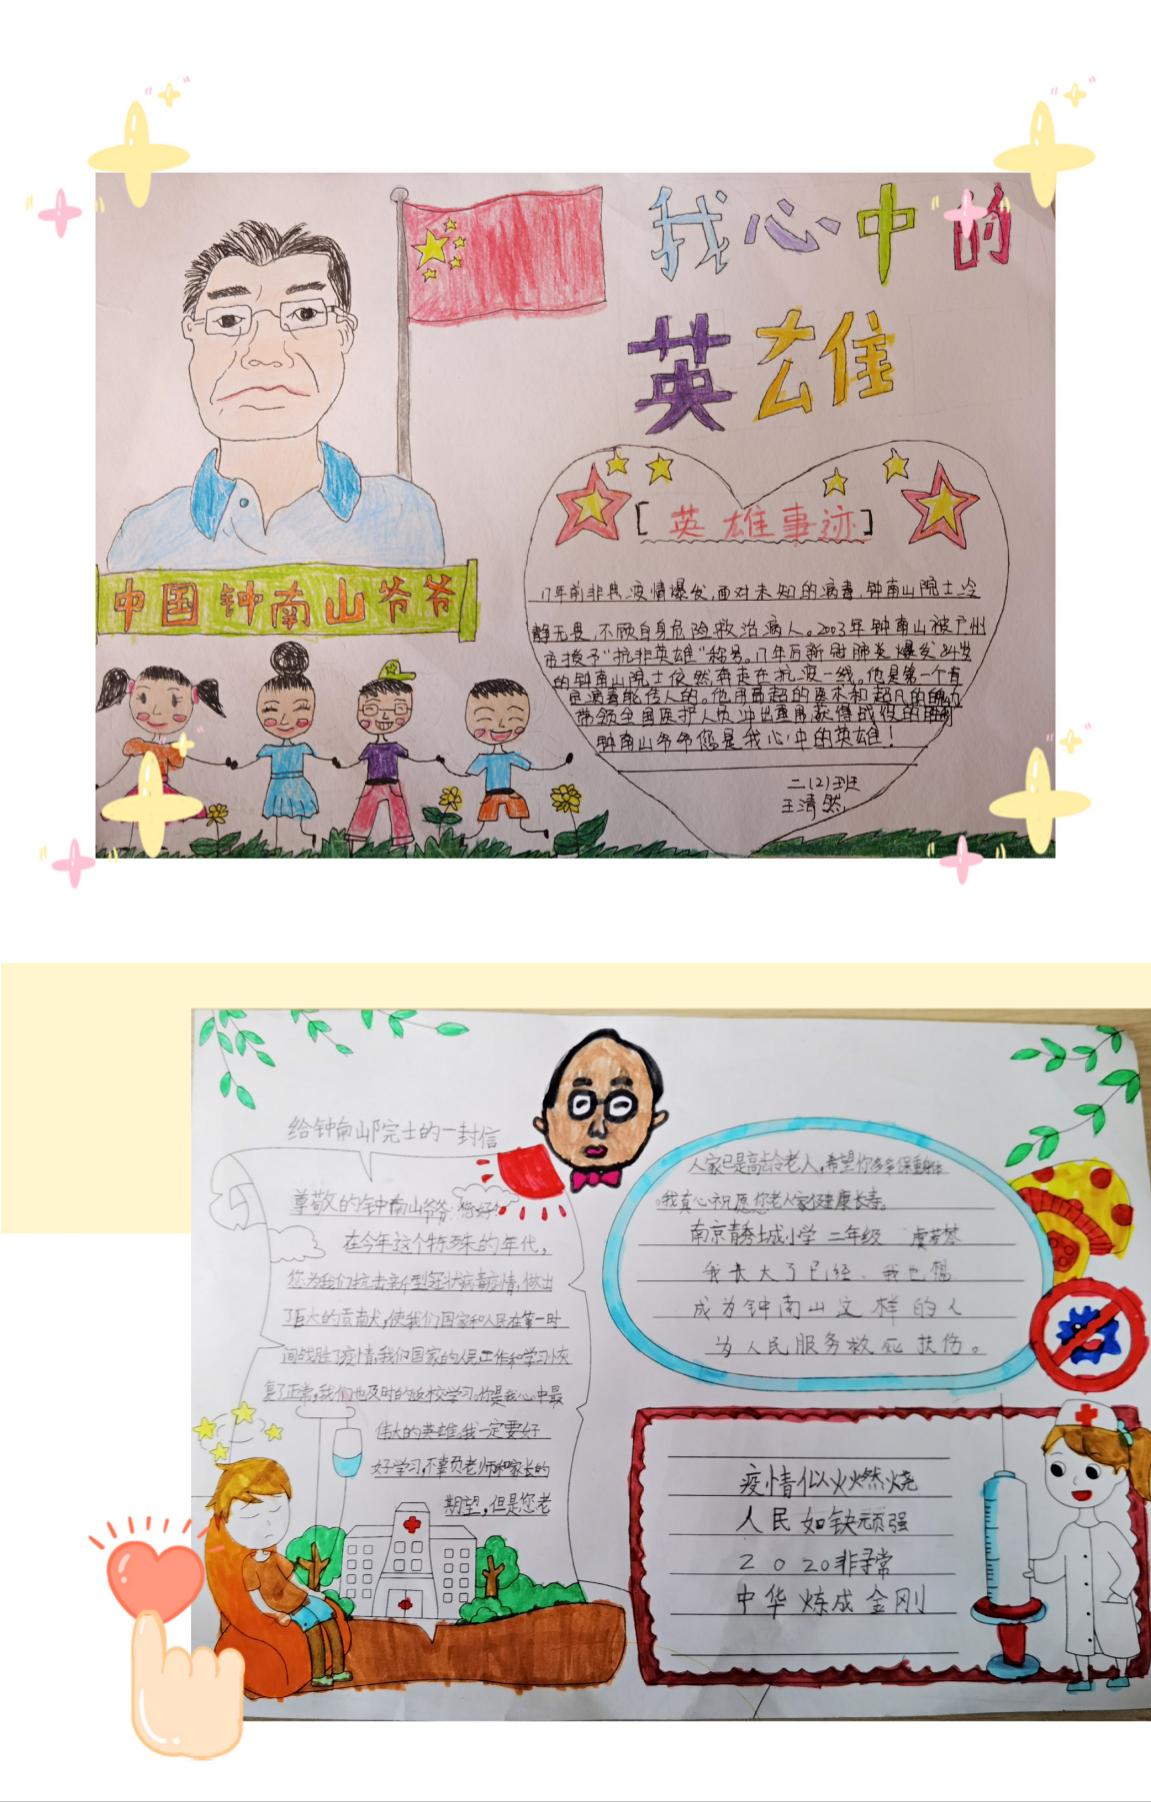 我心中的
英雄
[英雄事迹]
17年前非典疫情爆发,面对未知的病毒,钟南山院士冷
静无畏,不顾自身危险救治病人。2003年钟南山被广州
市授予“抗非英雄”称号。17年后新冠肺炎爆发84岁
的钟南山院士依然奔走在抗疫一线。他是第一个
病毒能传人的。他用高超的医术和超凡的
带领全国医护人员冲出重围获得战役的
钟南山爷爷您是我心中的英雄!
二(2)班
王清然
中国钟南山爷爷
给钟南山院士的一封信
尊敬的钟南山爷爷:您好!
在今年这个特殊的年代,
您为我们抗击新型冠状病毒疫情,做出
了巨大的贡献,使我们国家和人民在第一时
间战胜了疫情,我们国家的人民工作和学习恢
复了正常,我们也及时的返校学习。你是我心中最
伟大的英雄,我一定要好
好学习,不辜负老师和家长的
期望,但是您老
人家已是高龄老人,希望你多多保重身体
。我真心祝愿您老人家健康长寿。
南京青秀城小学 二年级 虞
我长大了已经,我也想
成为钟南山这样的人
为人民服务救死扶伤。
疫情似火燃烧
人民如铁顽强
2020非寻常
中华炼成金刚